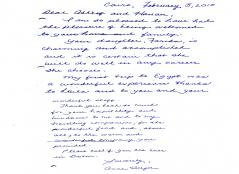 Cairo, February 5, 2010
Dear Ashraf and Hanan,
I am so pleased to have had
the pleasure of being welcomed
to your home and family.
Your daughter, is
charming and accomplished
and I'm certain that she
will do well in any career
she chooses.
My first trip to Egypt was
a wonderful experience thanks
to and to you and your
wonderful
Thank you both so much
for your hospitality and
kindness to me and to my
traveling companion, for the
wonderful food and, above
all, for the warm and
wonderful
Please call if you are ever
in
Sincerely,
Anne